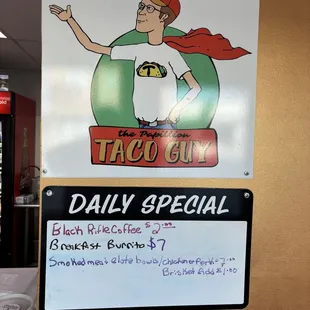 the Papillion
TACO GUY
DAILY SPECIAL
Black Rifle Coffee $2.00
Breakfast Burrito $7
Smoked meat plate bowls/chicken or Pork 7.00
Brisket Add $1.00